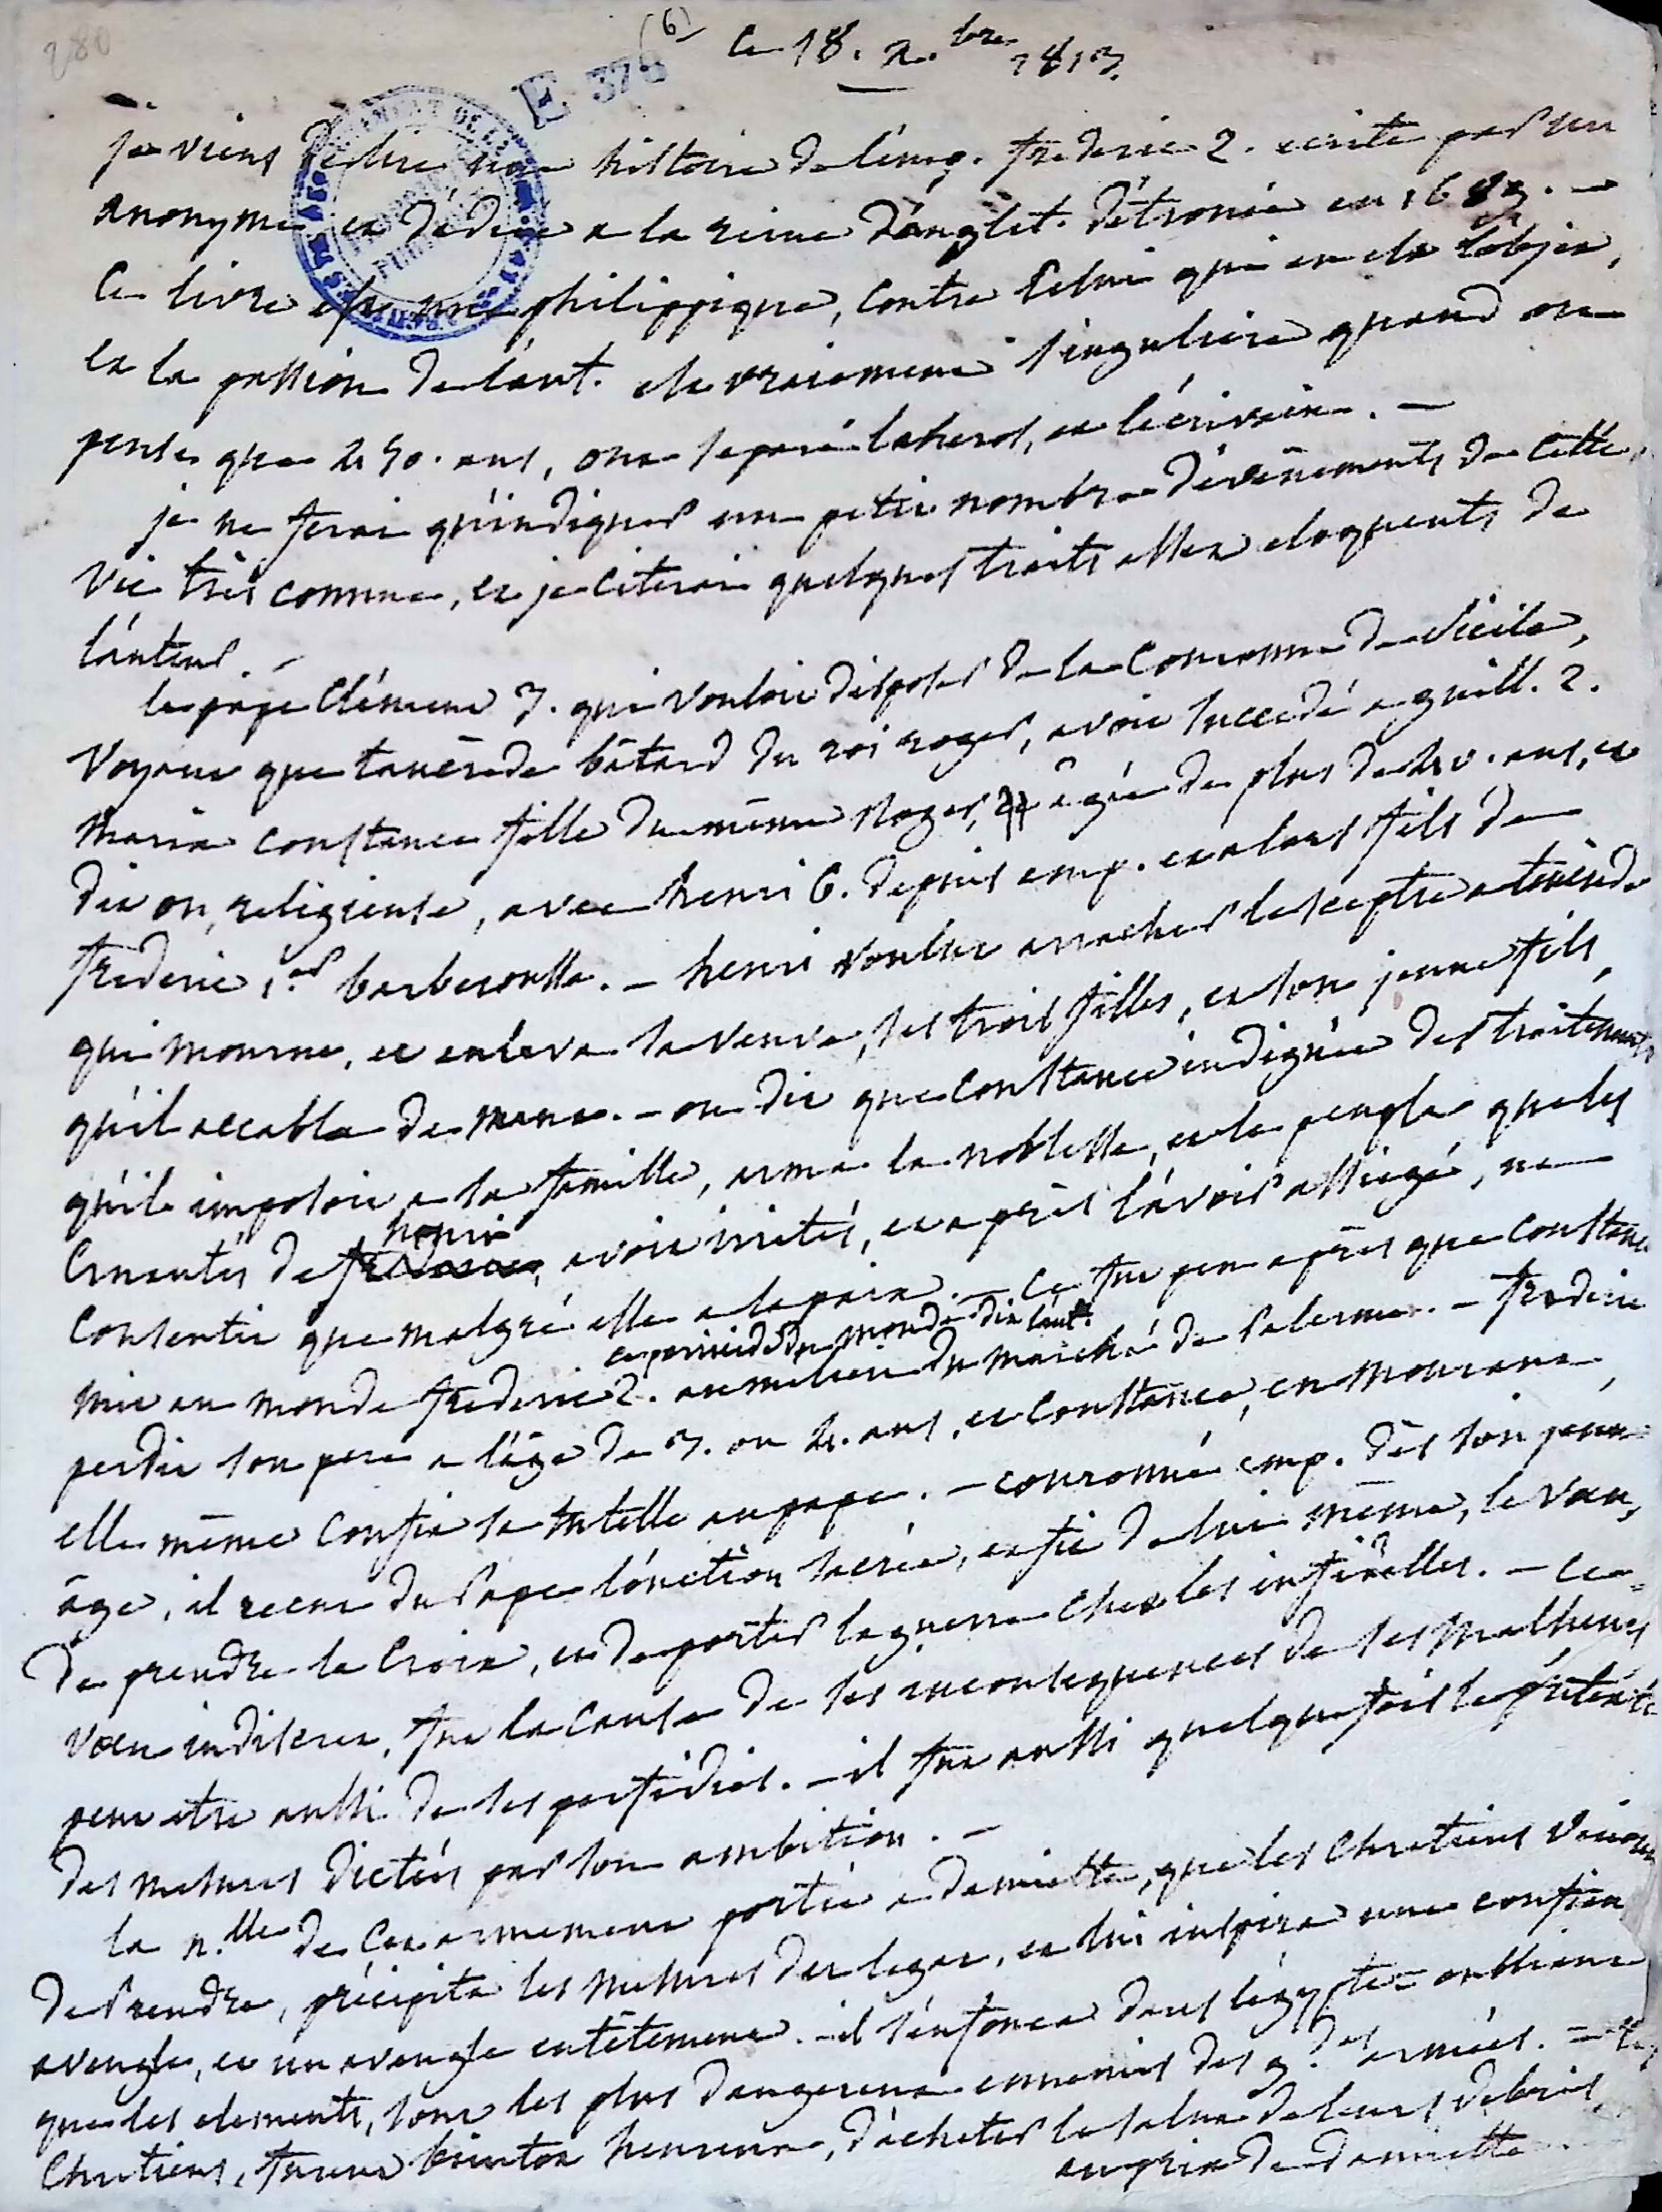 280
(6)
E 378
Ce 18. 2.bre 1813.
je viens de lire une histoire de l'emp. frederic 2. ecrite par un
anonyme et dédiée a la reine d'anglet. détronée en 1689. —
Ce livre est une philippique, contre celui qui en est l'objet,
et la passion de l'aut. est vraiement singuliere quand on
pense que 450. ans, ont separé le heros, et l'écrivain. —
je ne ferai qu'indiquer un petit nombre d'évènements de cette
vie très connue, et je citerai quelques traits assez eloquents de
l'auteur. —
le pape Clément 3. qui vouloit disposer de la Couronne de Sicile,
voyant que tancrède bâtard du roi roger, avoit succedé a guill. 2.
maria constance fille du même Roger, agée de plus de ans, et
dit on, religieuse, avec henri 6. depuis emp. et alors fils de
frederic 1.er barberousse. — henri voulut arracher le sceptre a tancrède
qui mourut, et enleva sa veuve, ses trois filles, et son jeune fils,
qu'il accabla de maux. — on dit que Constance indignée des traitements
qu'il imposoit a sa famille, arma la noblesse, et le peuple que les
cruautés de henri avoit irrités, et après l'avoir assiegé, ne
consentit que malgré elle a la paix. — ce fut peu après que Constance
mit au monde frederic 2. au milieu du marché de Palerme. — frederic
ce perfide du monde dit l'aut.
perdit son pere a l'âge de 3. ou 4. ans, et Constance, en mourant,
elle même confia sa tutelle au pape. — couronné emp. dès son jeune
âge, il recut du Pape l'onction sacrée, et fit de lui même, le vœu,
de prendre la Croix, et de porter la guerre chez les infidelles. — ce
vœu indiscret, fut la cause de ses inconsequences de ses malheurs
peut etre aussi de ses perfidies. — il fut aussi quelquefois le prétexte
des mesures dictées par son ambition. —
la n.lle de cet armement portée a damiette, que les Chretiens venoient
de prendre, précipita les mesures du legat, et lui inspira une confiance
aveugle, et un aveugle entêtement. — il s'enfonca dans l'égypte oubliant
que les elements, sont les plus dangereux ennemis des g.des armées. — les
Chretiens, furent bientot heureux, d'acheter le salut de leurs debris,
au prix de damiette